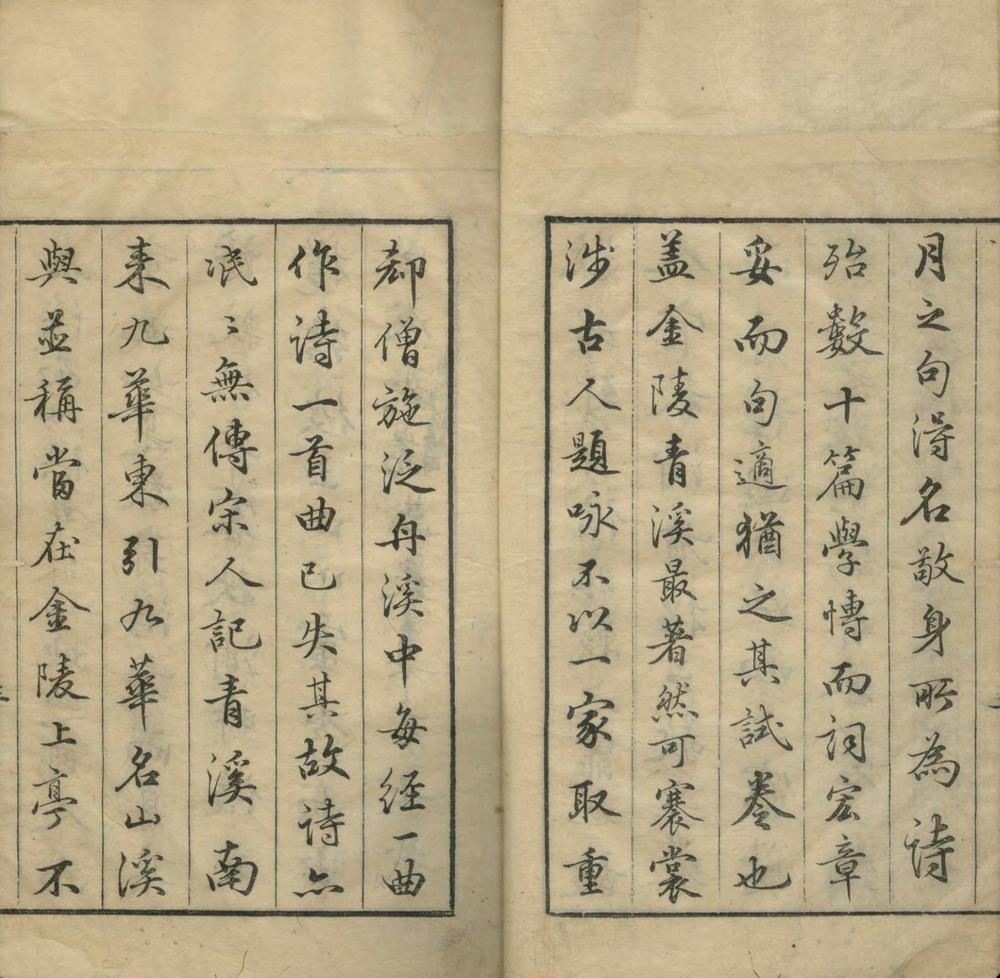 月之句得名敬身所為詩
殆數十篇學博而詞宏章
妥而句適猶之其試卷也
蓋金陵青溪最著然可褰裳
涉古人題咏不以一家取重
却僧施泛舟溪中每經一曲
作詩一首曲已失其故詩亦
泯〻無傳宋人記青溪南
来九華東引九華名山溪
與並稱當在金陵上亭不